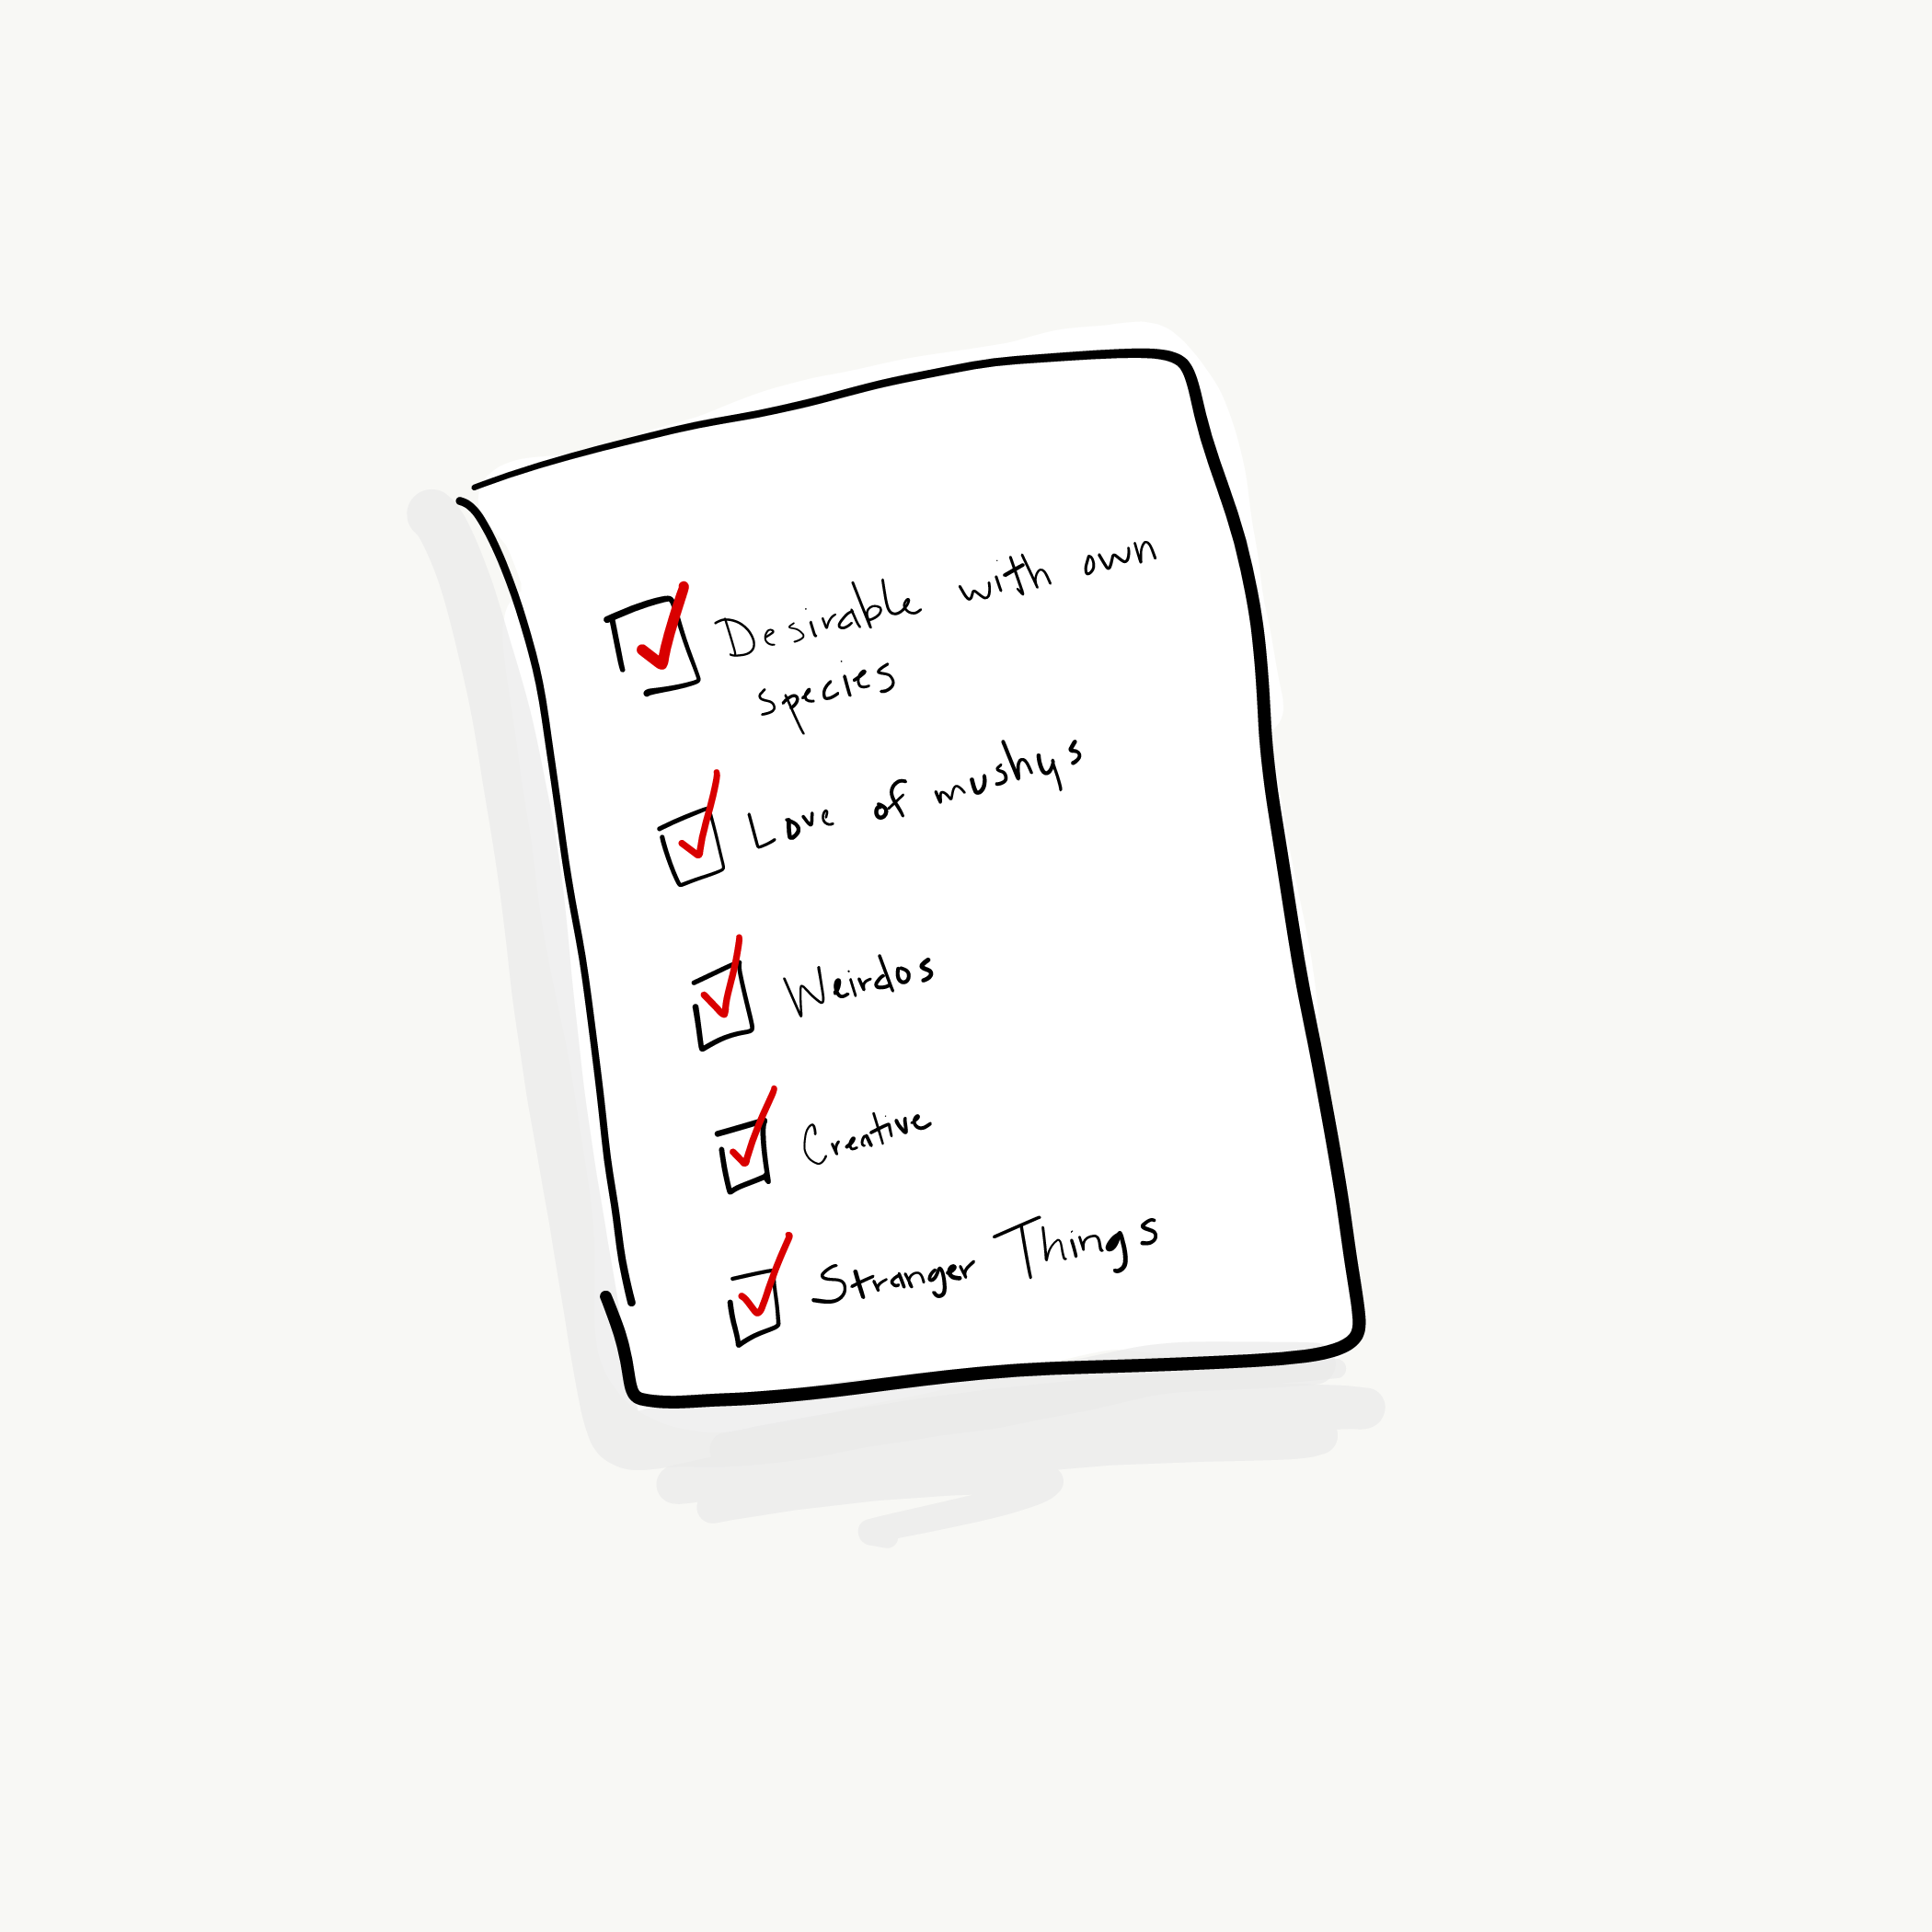 Desirable with own
species
Love of mushys
Weirdos
Creative
Stranger Things